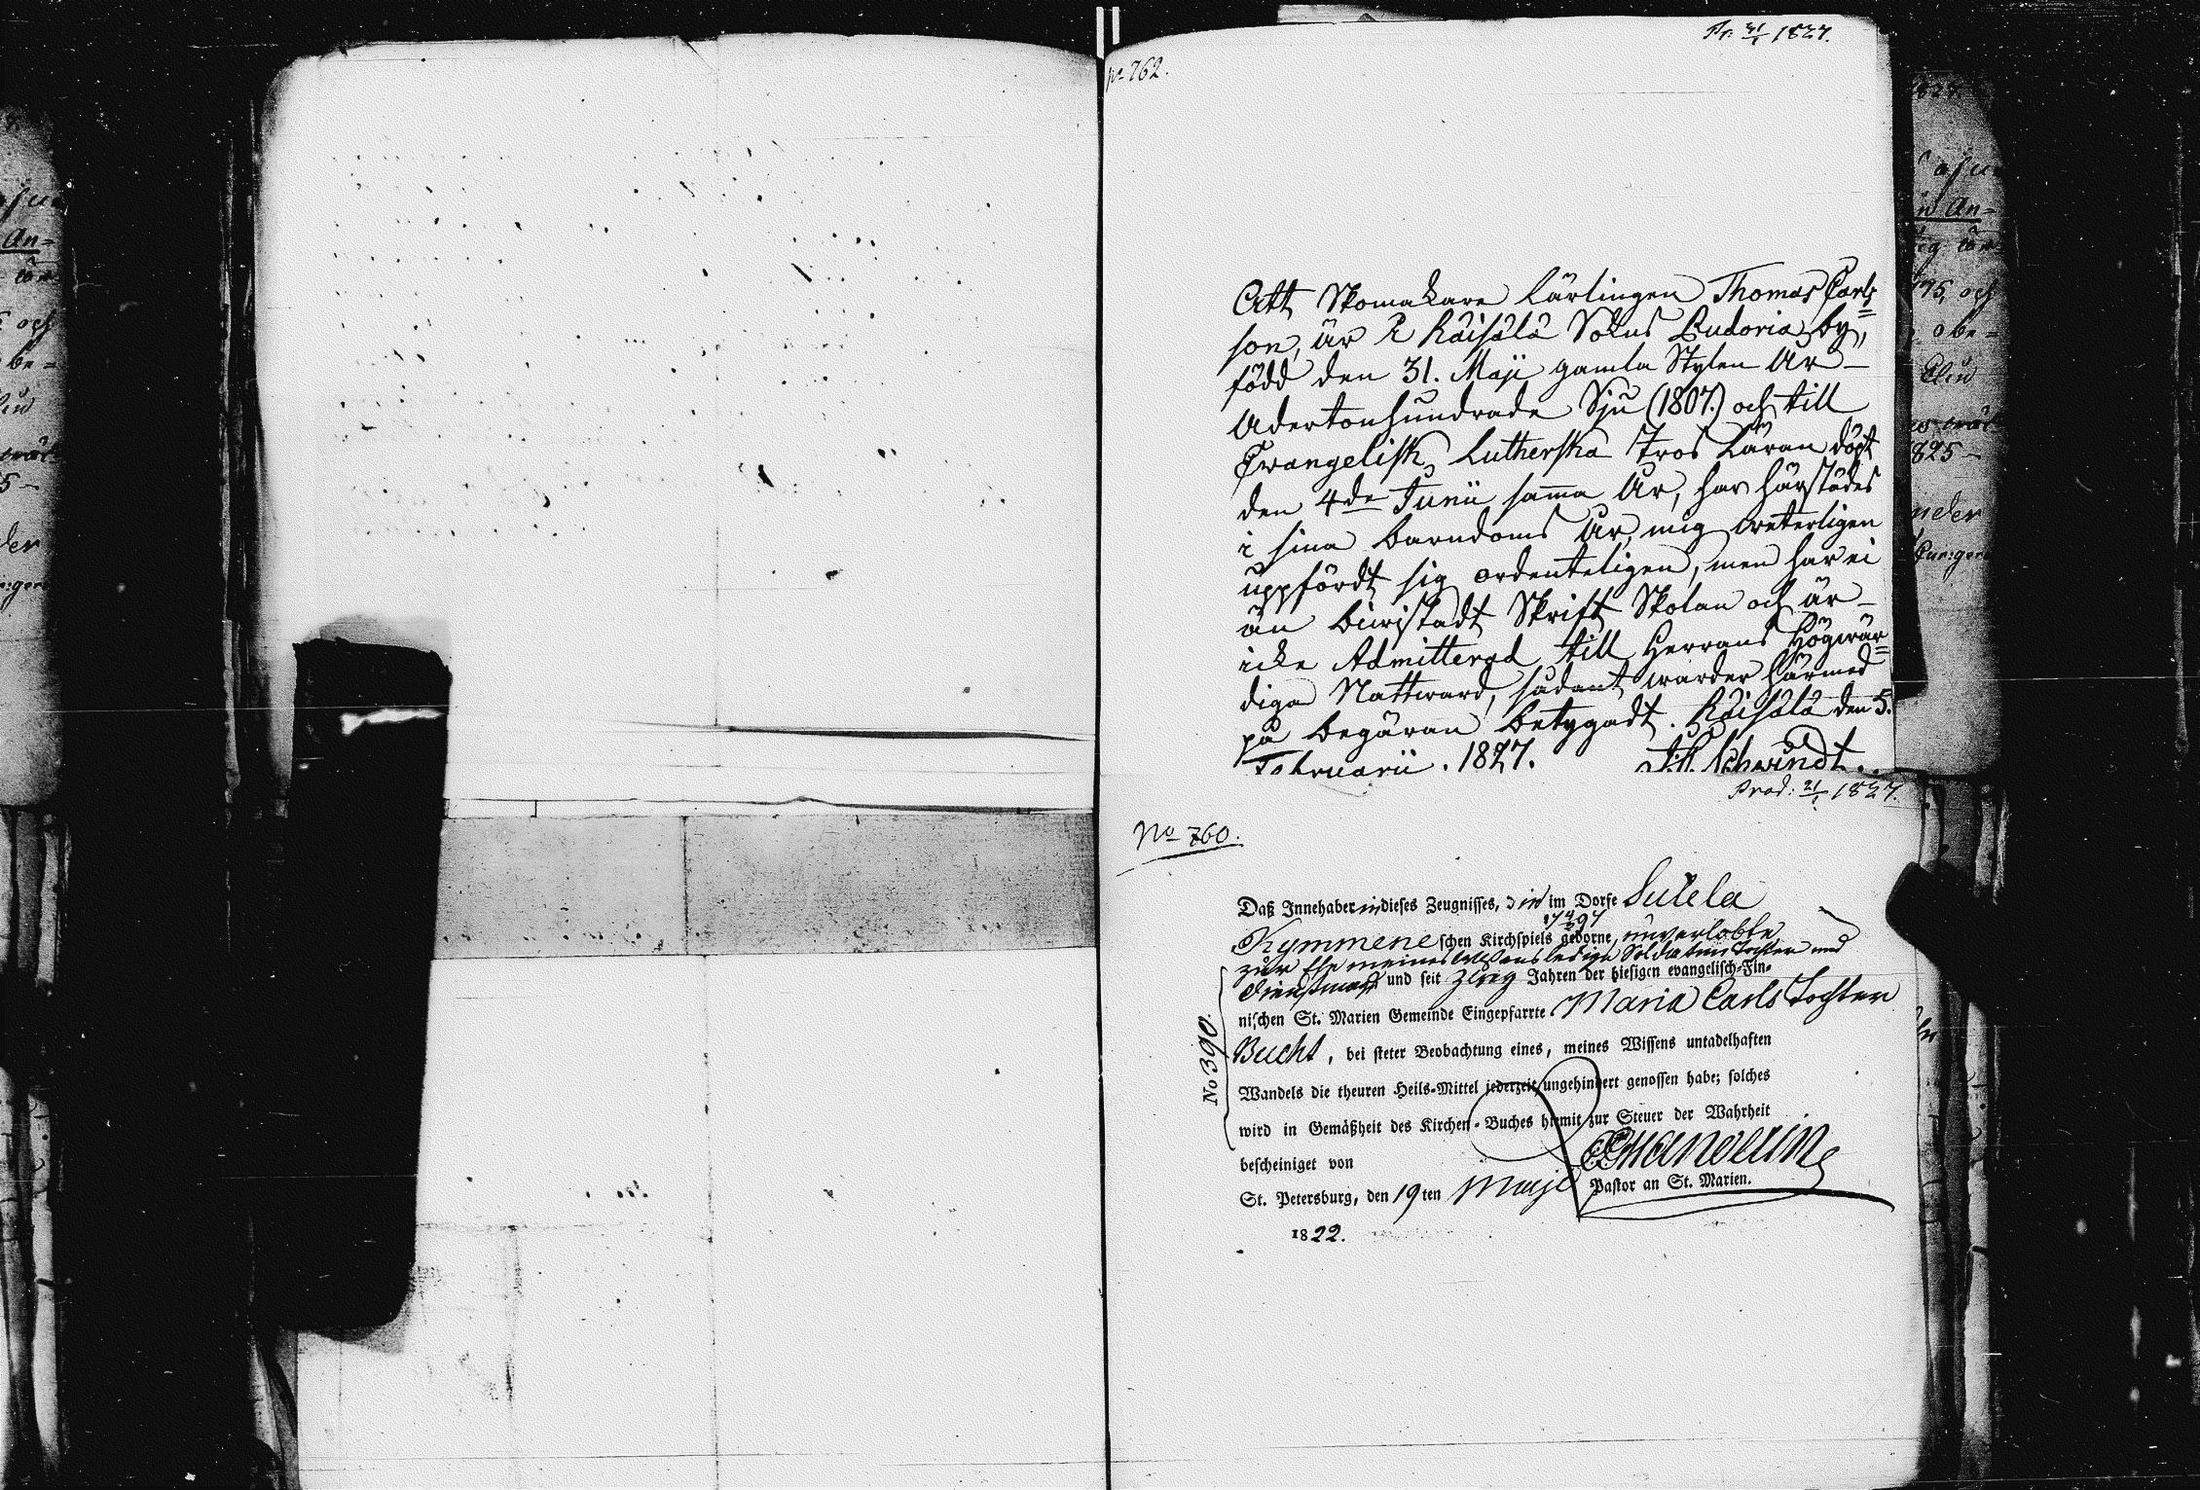 Pr: 31/1 1827.
No 762.
Att Skomakare Lärlingen Thomas Carls=
son, är i Räisälä Sokns Pudoria by,
född den 31. Maji gamla Stylen År
Adertonhundrade Sju (1807.) och till
Evangelisk Lutherska Tros Läran döpt
den 4de Junii samma År, har härstädes
i sina barndoms År, mig veterligen
uppfördt sig ordenteligen, men har ei
än bivistadt Skrift Skolan och är
icke Admitterad till Herrans Högwär=
diga Nattward, sådant warder härmed
på begäran betygadt. Räisälä den 5.
Februarii. 1827. Schwindt.
Prod: 31/1 1827.
No 760.
Daß Innehaberin dieses Zeugnisses, die im Dorfe Sutela
17 4/2 97
Kymmene schen Kirchspiels geborne, unverlobte,
zur Ehe meines Wissens ledige Soldatentochter und
Dienstmagd und seit zwey Jahren der hiesigen evangelisch-Fin-
nischen St. Marien Gemeinde Eingepfarrte Maria Carls Tochter
Bucht, bei steter Beobachtung eines, meines Wissens untadelhaften
Wandels die theuren Heils-Mittel jederzeit ungehindert genossen habe; solches
wird in Gemäßheit des Kirchen-Buches hiemit zur Steuer der Wahrheit
bescheiniget von
St. Petersburg, den 19ten Maji Pastor an St. Marien.
1822.
No 390.